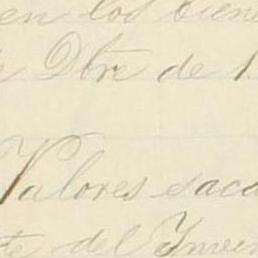 en los biene
Dbre de 1
Valores saca
te del Inven